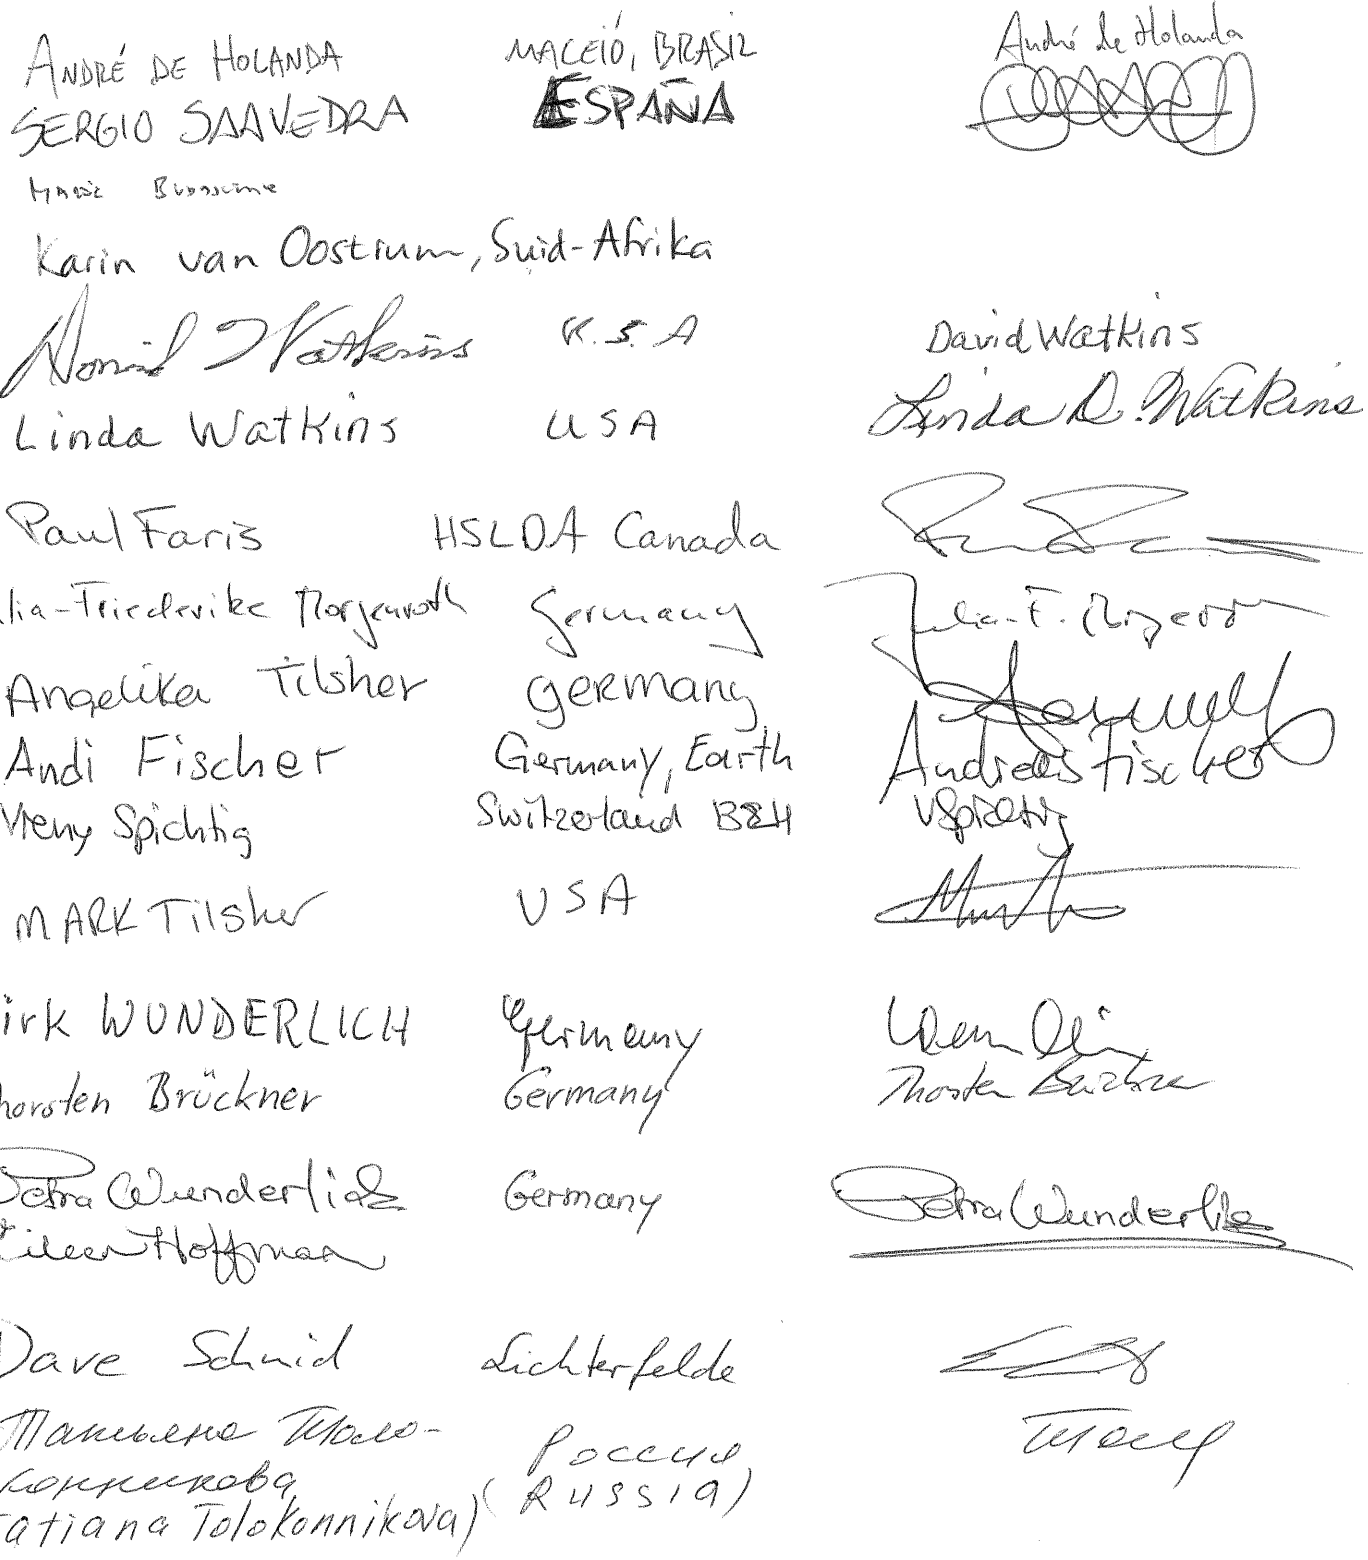 ANDRÉ DE HOLANDA MACEIÓ, BRASIL André de Holanda
SERGIO SAAVEDRA ESPAÑA
Karin van Oostrum, Suid-Afrika
Watkins U.S.A David Watkins
Linda Watkins USA Linda D. Watkins
Paul Faris HSLDA Canada
lia-Friederike Morgenroth Germany Julia-F.
Angelika Tilsher Germany
Andi Fischer Germany, Earth Andreas Fischer
Vreny Spichtig Switzerland B&H VSpichtig
MARK Tilsher USA
irk WUNDERLICH Germany
horsten Brückner Germany Thorsten Brückner
Petra Wunderlich Germany Petra Wunderlich
Eileen Hoffman
Dave Schmid Lichterfelde
Татьяна Толо- Россия
конникова
(RUSSIA)
atiana Tolokonnikova)